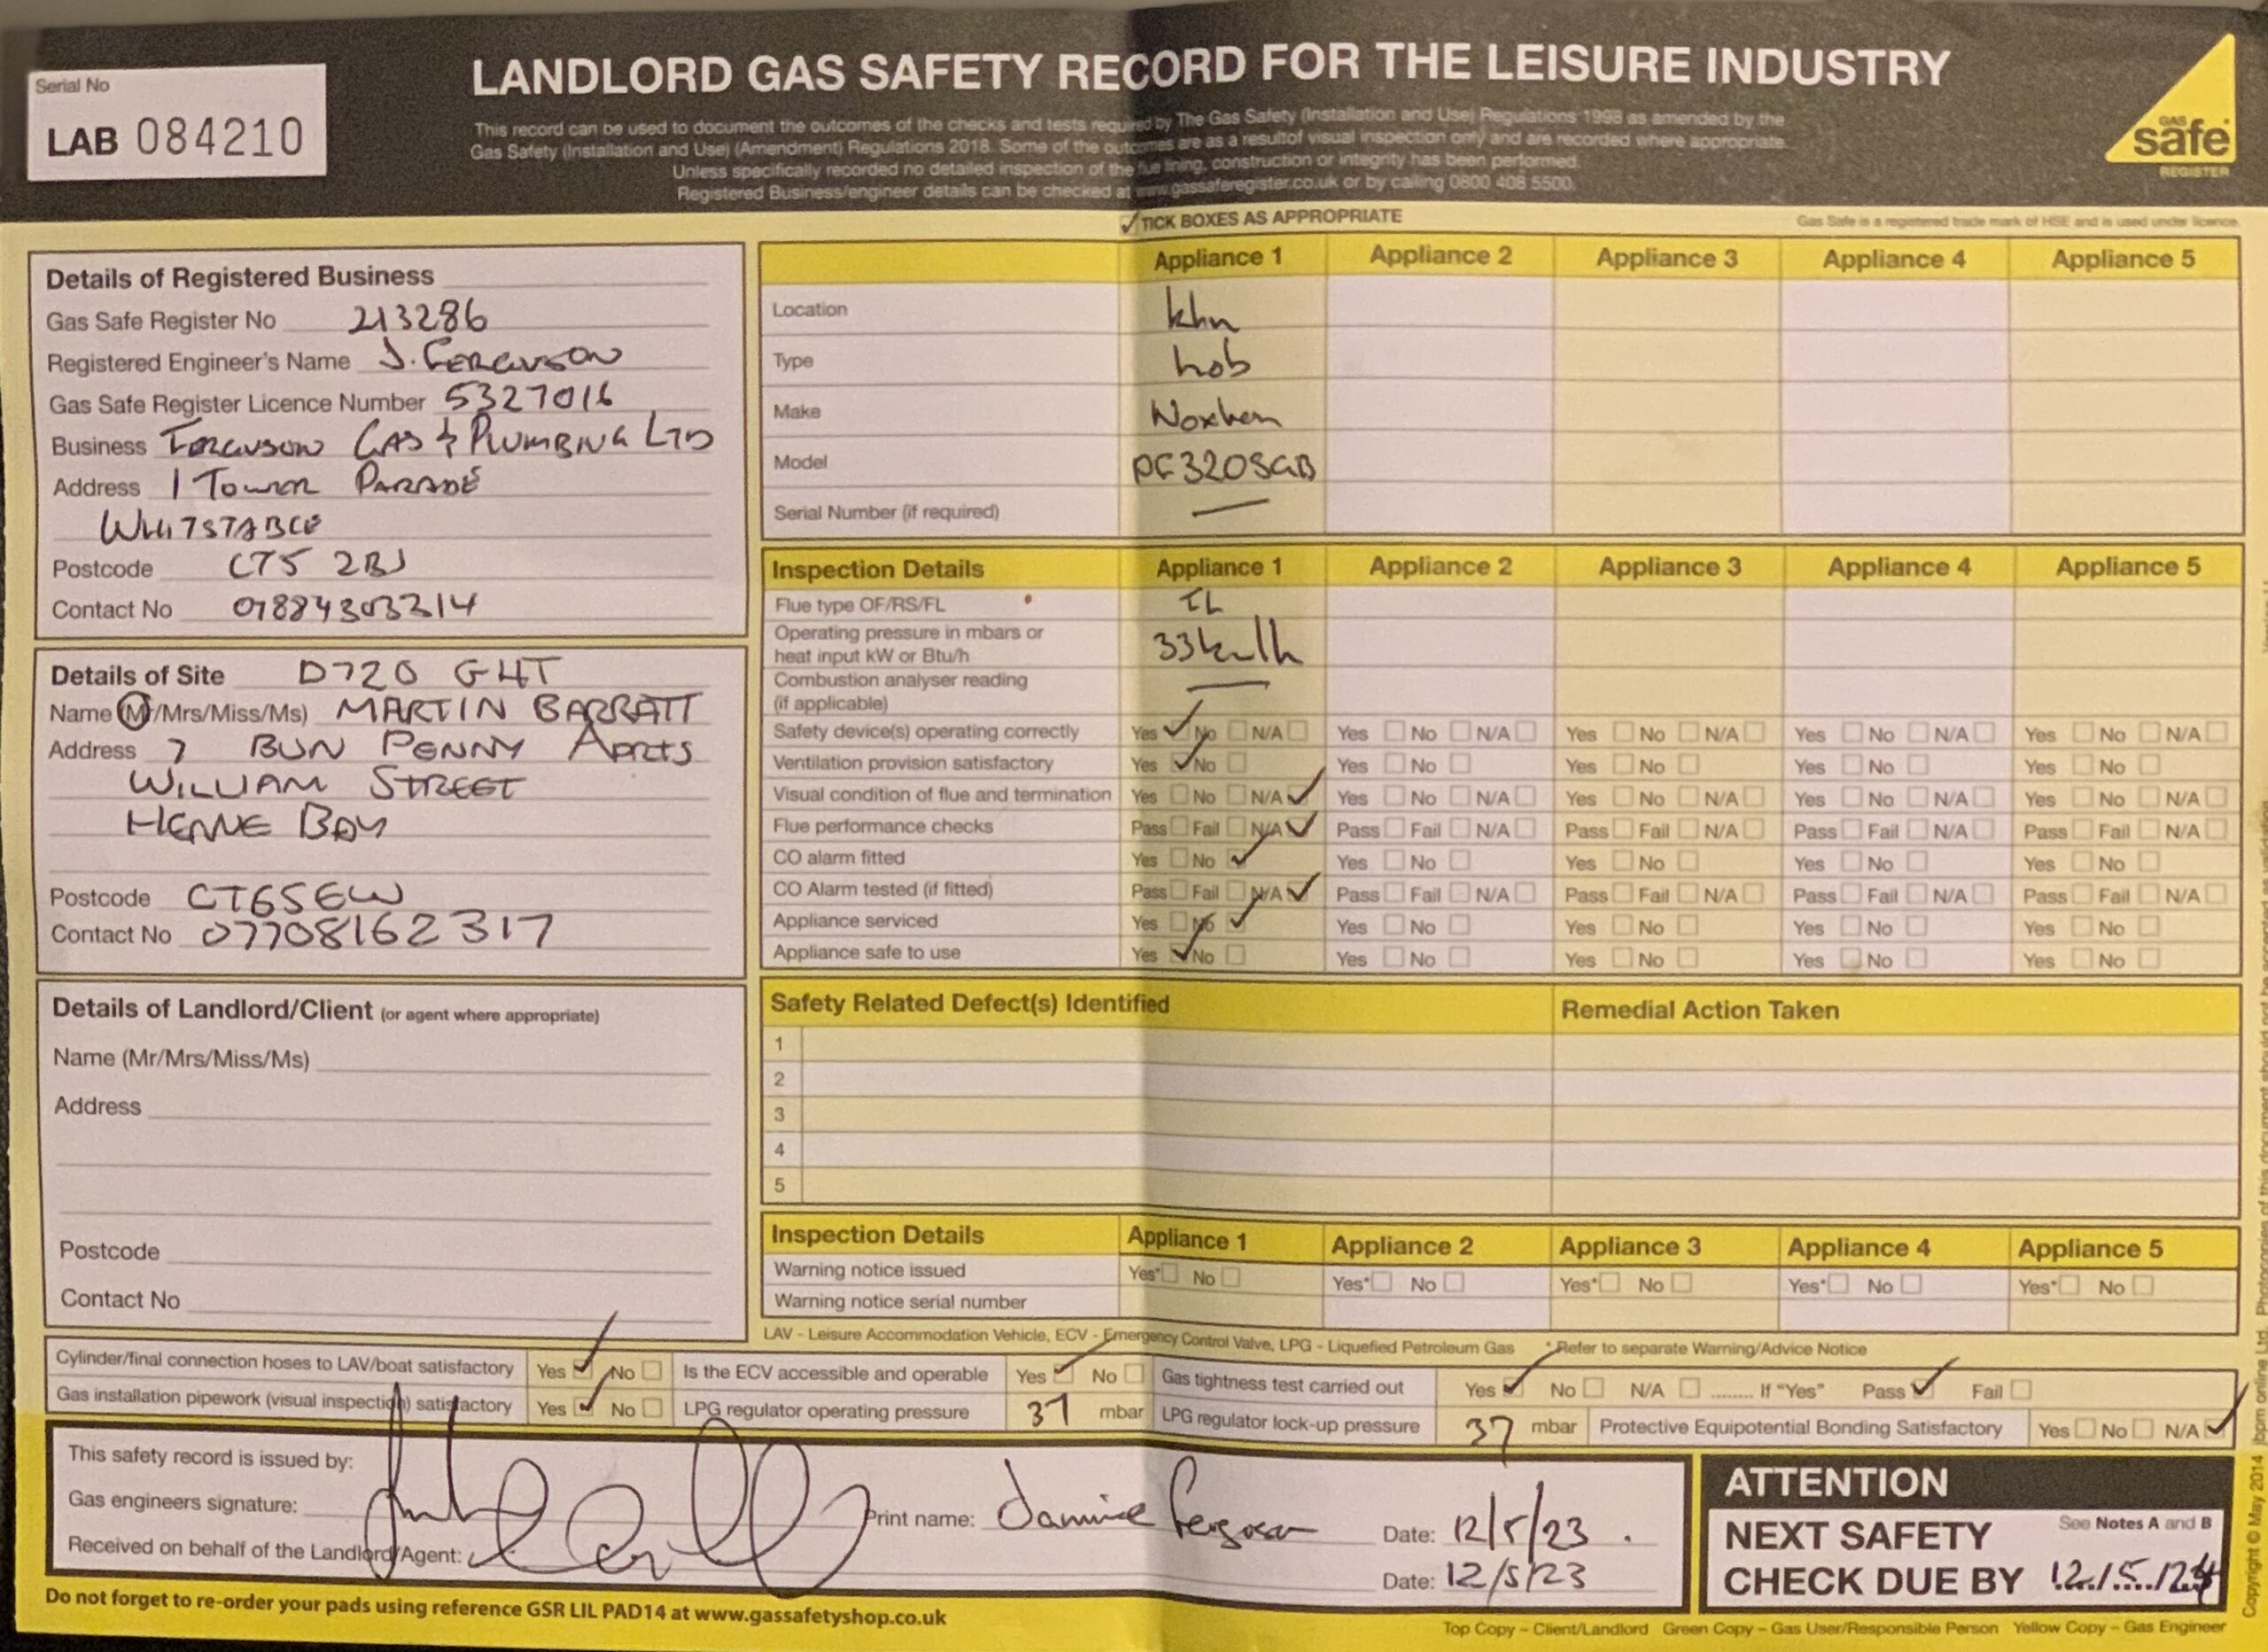 Serial No
LAB 084210
LANDLORD GAS SAFETY RECORD FOR THE LEISURE INDUSTRY
This record can be used to document the outcomes of the checks and tests required by The Gas Safety (Installation and Use) Regulations 1998 as amended by the
Gas Safety (Installation and Use) (Amendment) Regulations 2018. Some of the outcomes are as a resultof visual inspection only and are recorded where appropriate.
Unless specifically recorded no detailed inspection of the flue lining, construction or integrity has been performed.
Registered Business/engineer details can be checked at www.gassaferegister.co.uk or by calling 0800 408 5500.
GAS safe REGISTER
✓TICK BOXES AS APPROPRIATE
Gas Safe is a registered trade mark of HSE and is used under licence.
Details of Registered Business
Gas Safe Register No 213286
Registered Engineer's Name J. FERGUSON
Gas Safe Register Licence Number 5327016
Business FERGUSON GAS & PLUMBING LTD
Address 1 TOWER PARADE
WHITSTABLE
Postcode CT5 2BJ
Contact No 07884303214
Details of Site D720 GHT
Name (Mr/Mrs/Miss/Ms) MARTIN BARRATT
Address 7 BUN PENNY APRTS
WILLIAM STREET
HERNE BAY
Postcode CT65EW
Contact No 07708162317
Details of Landlord/Client (or agent where appropriate)
Name (Mr/Mrs/Miss/Ms)
Address
Postcode
Contact No
Appliance 1 Appliance 2 Appliance 3 Appliance 4 Appliance 5
Location
Type hob
Make
Model PC320SGB
Serial Number (if required) —
Inspection Details Appliance 1 Appliance 2 Appliance 3 Appliance 4 Appliance 5
Flue type OF/RS/FL
Operating pressure in mbars or
heat input kW or Btu/h
Combustion analyser reading
(if applicable) —
Safety device(s) operating correctly Yes ✓ No N/A Yes No N/A Yes No N/A Yes No N/A Yes No N/A
Ventilation provision satisfactory Yes ✓ No Yes No Yes No Yes No Yes No
Visual condition of flue and termination Yes No N/A ✓ Yes No N/A Yes No N/A Yes No N/A Yes No N/A
Flue performance checks Pass Fail N/A ✓ Pass Fail N/A Pass Fail N/A Pass Fail N/A Pass Fail N/A
CO alarm fitted Yes No ✓ Yes No Yes No Yes No Yes No
CO Alarm tested (if fitted) Pass Fail N/A ✓ Pass Fail N/A Pass Fail N/A Pass Fail N/A Pass Fail N/A
Appliance serviced Yes No ✓ Yes No Yes No Yes No Yes No
Appliance safe to use Yes ✓ No Yes No Yes No Yes No Yes No
Safety Related Defect(s) Identified Remedial Action Taken
1
2
3
4
5
Inspection Details Appliance 1 Appliance 2 Appliance 3 Appliance 4 Appliance 5
Warning notice issued Yes* No Yes* No Yes* No Yes* No Yes* No
Warning notice serial number
LAV - Leisure Accommodation Vehicle, ECV - Emergency Control Valve, LPG - Liquefied Petroleum Gas * Refer to separate Warning/Advice Notice
Cylinder/final connection hoses to LAV/boat satisfactory Yes ✓ No Is the ECV accessible and operable Yes ✓ No Gas tightness test carried out Yes ✓ No N/A ........ If "Yes" Pass ✓ Fail
Gas installation pipework (visual inspection) satisfactory Yes ✓ No LPG regulator operating pressure 37 mbar LPG regulator lock-up pressure 37 mbar Protective Equipotential Bonding Satisfactory Yes No N/A ✓
This safety record is issued by:
Gas engineers signature: Print name: Ferguson Date: 12/5/23
Received on behalf of the Landlord/Agent: Date: 12/5/23
ATTENTION
See Notes A and B
NEXT SAFETY
CHECK DUE BY 12/5/24
Do not forget to re-order your pads using reference GSR LIL PAD14 at www.gassafetyshop.co.uk
Top Copy – Client/Landlord Green Copy – Gas User/Responsible Person Yellow Copy – Gas Engineer
Copyright © May 2014